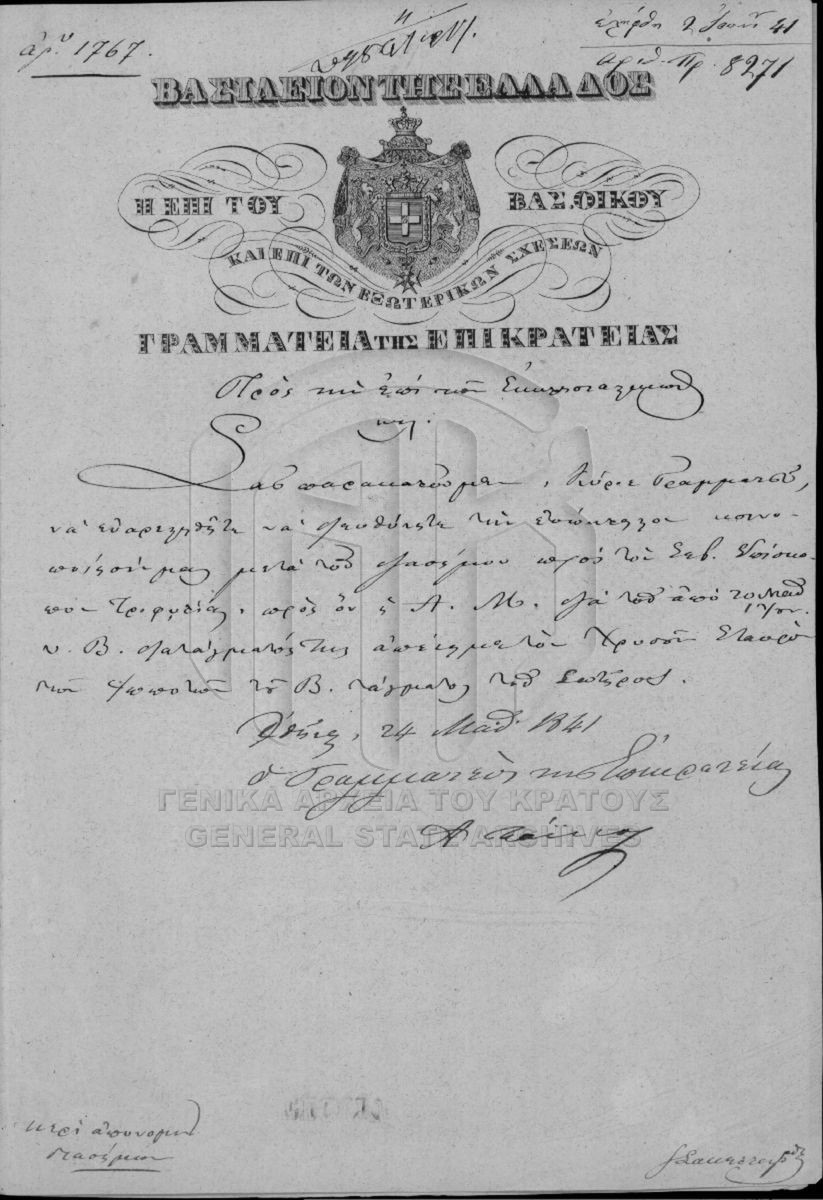 ἀρ. 1767.
ἐλήφθη 2 Ἰουν. 41
ἀριθ. Πρ. 8271
ΒΑΣΙΛΕΙΟΝ ΤΗΣ ΕΛΛΑΔΟΣ
Η ΕΠΙ ΤΟΥ ΒΑΣ. ΟΙΚΟΥ
ΚΑΙ ΕΠΙ ΤΩΝ ΕΞΩΤΕΡΙΚΩΝ ΣΧΕΣΕΩΝ
ΓΡΑΜΜΑΤΕΙΑ ΤΗΣ ΕΠΙΚΡΑΤΕΙΑΣ
Πρὸς τὴν ἐπὶ τῶν Ἐκκλησιαστικῶν
κτλ.
Σᾶς παρακαλοῦμεν, Κύριε Γραμματεῦ,
νὰ εὐαρεστηθῆτε νὰ διευθύνετε τὴν ἐσώκλειστον κοινο-
ποίησίν μας μετὰ τοῦ διασήμου πρὸς τὸν Σεβ. Ἐπίσκο-
πον Τριφυλίας, πρὸς ὃν ἡ Α. Μ. διὰ τοῦ ἀπὸ 20 Μαΐου
ν. Β. διατάγματός της ἀπένειμε τὸν Χρυσοῦν Σταυρὸν
τῶν Ἱπποτῶν τοῦ Β. τάγματος τοῦ Σωτῆρος.
Ἀθῆναι, 24 Μαΐου 1841
ὁ Γραμματεὺς τῆς Ἐπικρατείας
ΓΕΝΙΚΑ ΑΡΧΕΙΑ ΤΟΥ ΚΡΑΤΟΥΣ
GENERAL STATE ARCHIVES
περὶ ἀπονομῆς
διασήμων